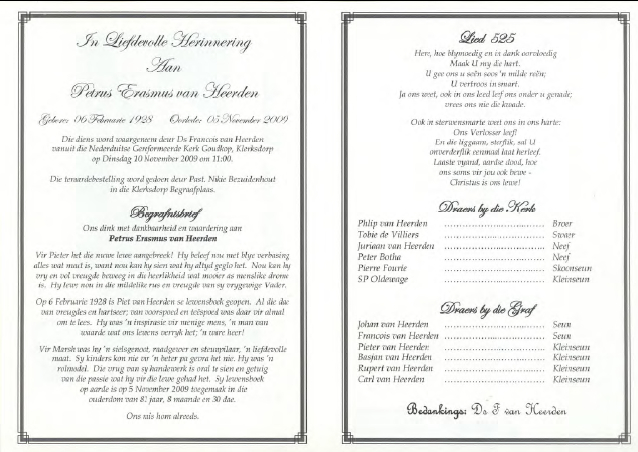 In Liefdevolle Herinnering
Aan
Petrus Erasmus van Heerden
Gebore: 06 Februarie 1928 Oorlede: 05 November 2009
Die diens word waargeneem deur Ds Francois van Heerden
vanuit die Nederduitse Gereformeerde Kerk Goudkop, Klerksdorp
op Dinsdag 10 November 2009 om 11:00.
Die teraardebestelling word gedoen deur Past. Nikie Bezuidenhout
in die Klerksdorp Begraafplaas.
Begrafnisbrief
Ons dink met dankbaarheid en waardering aan
Petrus Erasmus van Heerden
Vir Pieter het die nuwe lewe aangebreek! Hy beleef nou met blye verbasing
alles wat mooi is, want nou kan hy sien wat hy altyd geglo het. Nou kan hy
vry en vol vreugde beweeg in die heerlikheid wat mooier as menslike drome
is. Hy lewe nou in die mildelike rus en vreugde van sy vrygewige Vader.
Op 6 Februarie 1928 is Piet van Heerden se lewensboek geopen. Al die dae
van vreugdes en hartseer; van voorspoed en teëspoed was daar vir almal
om te lees. Hy was 'n inspirasie vir menige mens, 'n man van
waarde wat ons lewens verryk het; 'n ware heer!
Vir Marsie was hy 'n sielsgenoot, raadgewer en steunpilaar, 'n liefdevolle
maat. Sy kinders kon nie vir 'n beter pa gevra het nie. Hy was 'n
rolmodel. Die vrug van sy handewerk is oral te sien en getuig
van die passie wat hy vir die lewe gehad het. Sy lewensboek
op aarde is op 5 November 2009 toegemaak in die
ouderdom van 81 jaar, 8 maande en 30 dae.
Ons mis hom alreeds.
Lied 525
Here, hoe blymoedig en is dank oorvloedig
Maak U my die hart.
U gee ons u seën soos 'n milde reën;
U vertroos in smart.
Ja ons weet, ook in ons leed leef ons onder u genade;
vrees ons nie die kwade.
Ook in sterwensmarte weet ons in ons harte:
Ons Verlosser leef!
En die liggaam, sterflik, sal U
onverderflik eenmaal laat herleef.
Laaste vyand, aardse dood, hoe
ons soms vir jou ook bewe -
Christus is ons lewe!
Draers by die Kerk
Philip van Heerden .................................... Broer
Tobie de Villiers .................................... Swaer
Juriaan van Heerden .................................... Neef
Peter Botha .................................... Neef
Pierre Fourie .................................... Skoonseun
SP Oldewage .................................... Kleinseun
Draers by die Graf
Johan van Heerden .................................... Seun
Francois van Heerden .................................... Seun
Pieter van Heerden .................................... Kleinseun
Basjan van Heerden .................................... Kleinseun
Rupert van Heerden .................................... Kleinseun
Carl van Heerden .................................... Kleinseun
Bedankings: Ds F van Heerden